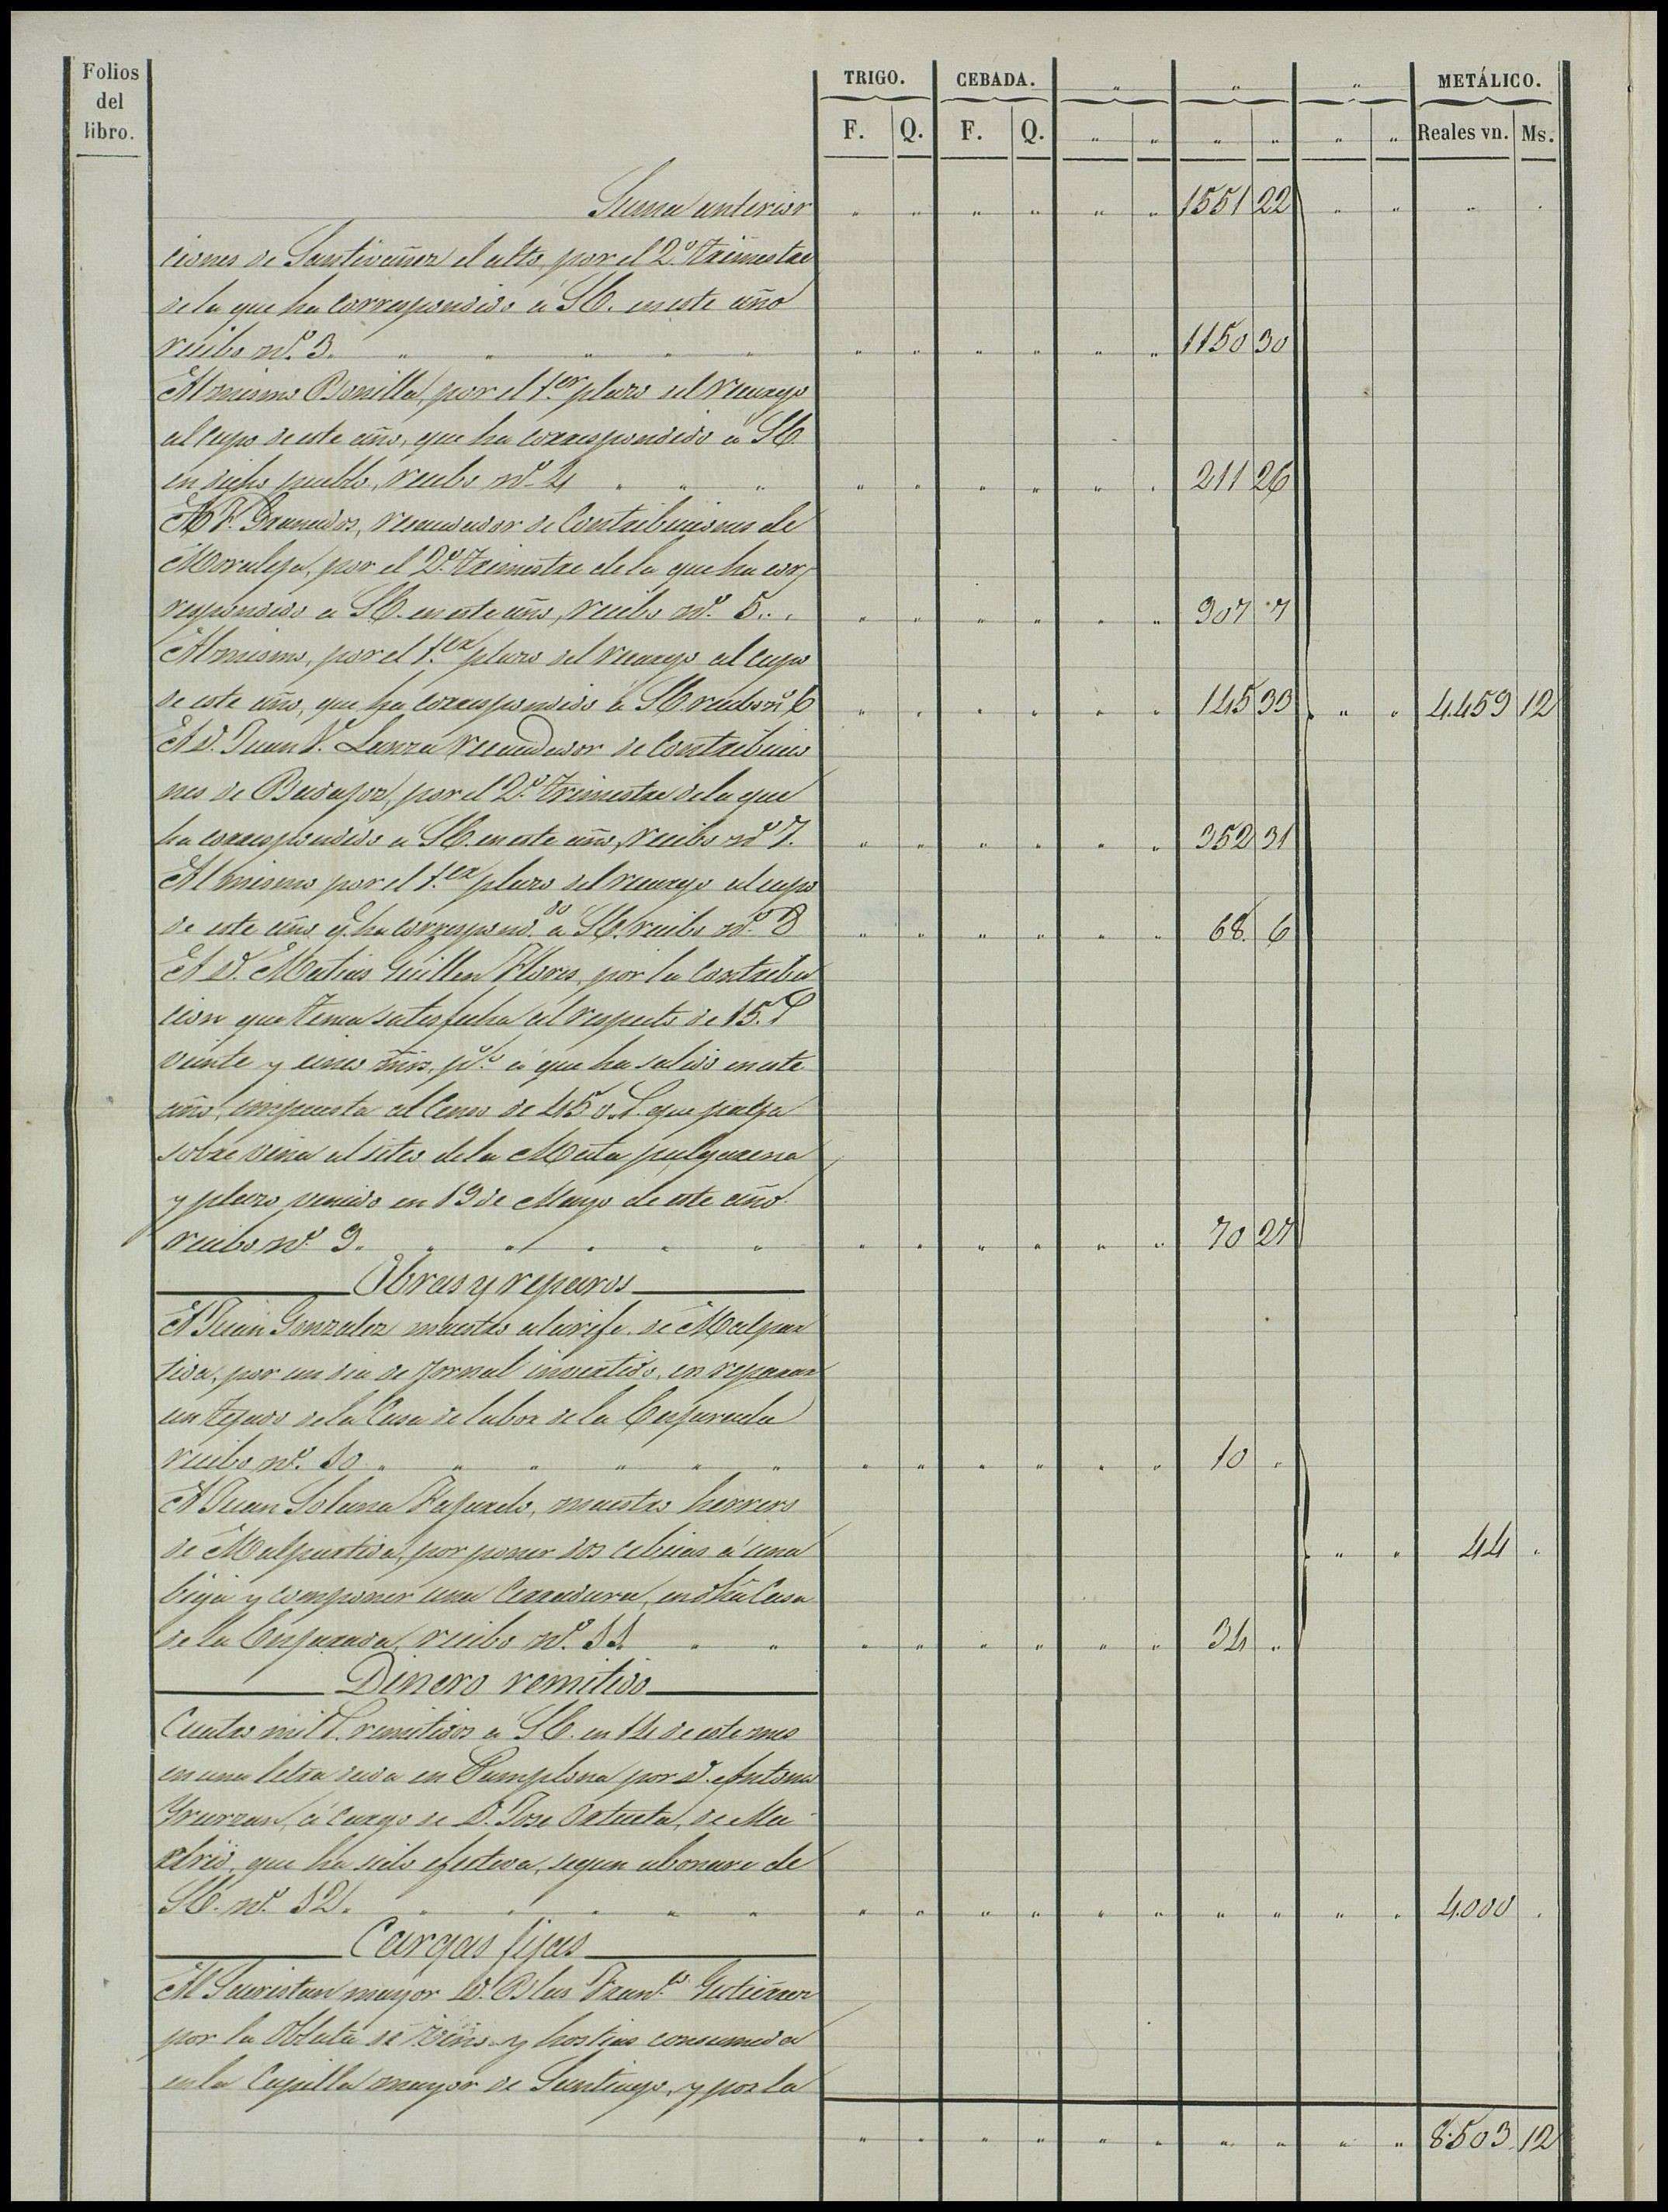 Folios del libro.
TRIGO. CEBADA. " " " METÁLICO.
F. Q. F. Q. " " " " " " Reales vn. Ms.
Suma anterior " " " " " " 1551 22 " " " "
ciones de Santivañez el alto, por el 2.º trimestre
de la que ha correspondido á SE. en este año
recibo nº. 3. " " " " " " " " " " " 1150 30
Al mismo Bonilla, por el 1.er plazo del recargo
al cupo de este año, que ha correspondido á SE
en dicho pueblo, recibo nº. 4 " " " " " " " " " 211 26
A F. Granados, recaudador de Contribuciones de
Moraleja, por el 2º. trimestre de la que ha cor
respondido a SE. en este año, recibo nº. 5. " " " " " " " 907 7
Al mismo, por el 1.er plazo del recargo al cupo
de este año, que ha correspondido á SE. recibo nº 6 " " " " " " 145 33 " " 4.459 12
A D. Juan F. Lanza recaudador de Contribucio
nes de Badajoz, por el 2º. trimestre de la que
ha correspondido a SE. en este año, recibo nº 7. " " " " " " 352 31
Al mismo por el 1.er plazo del recargo al cupo
de este año q. ha correspond.do a SE. recibo nº. 8 " " " " " " 68 6
A D. Matias Guillen Flores, por la Contribu
cion que tenia satisfecha al respecto de 15.
veinte y cinco mrs. pº á que ha salido en este
año, impuesta al Censo de 450. que paga
sobre viña al sitio de la Mata pulgarena
y plazo vencido en 19 de Marzo de este año.
recibo nº 9. " " " " " " " " " " " 70 27
Obras y reparos
A Juan Gonzalez maestro alarife de Malpar
tida, por un dia de jornal invertido, en reparar
un tejado de la Casa de labor de la Enjarada
recibo nº. 10 " " " " " " " " " " " " 10 "
A Juan Solana Fajardo, maestro herrero
de Malpartida, por poner dos cabezas á una " " 44 "
biga y componer una Cerradura, en dha Casa
de la Enjarada, recibo nº. 11. " " " " " " " " 34 "
Dinero remitido
Cuatro mil r. remitidos a SE. en 14 de este mes
en una letra dada en Pamplona por D. Antonio
Yrurzun, á cargo de D. Jose Ortueta, de Ma
drid, que ha sido efectiva, segun abonare de
SE. nº. 12. " " " " " " " " " " " " " " " 4.000 "
Cargas fijas
Al Sacristan mayor D. Blas Fran.co Gutierrez
por la Oblata de vino y hostias consumida
en la Capilla mayor de Santiago, y por la
" " " " " " " " " " 8.503 12